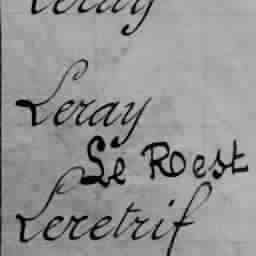 Leray
Leray
Le Roest
Leretrif